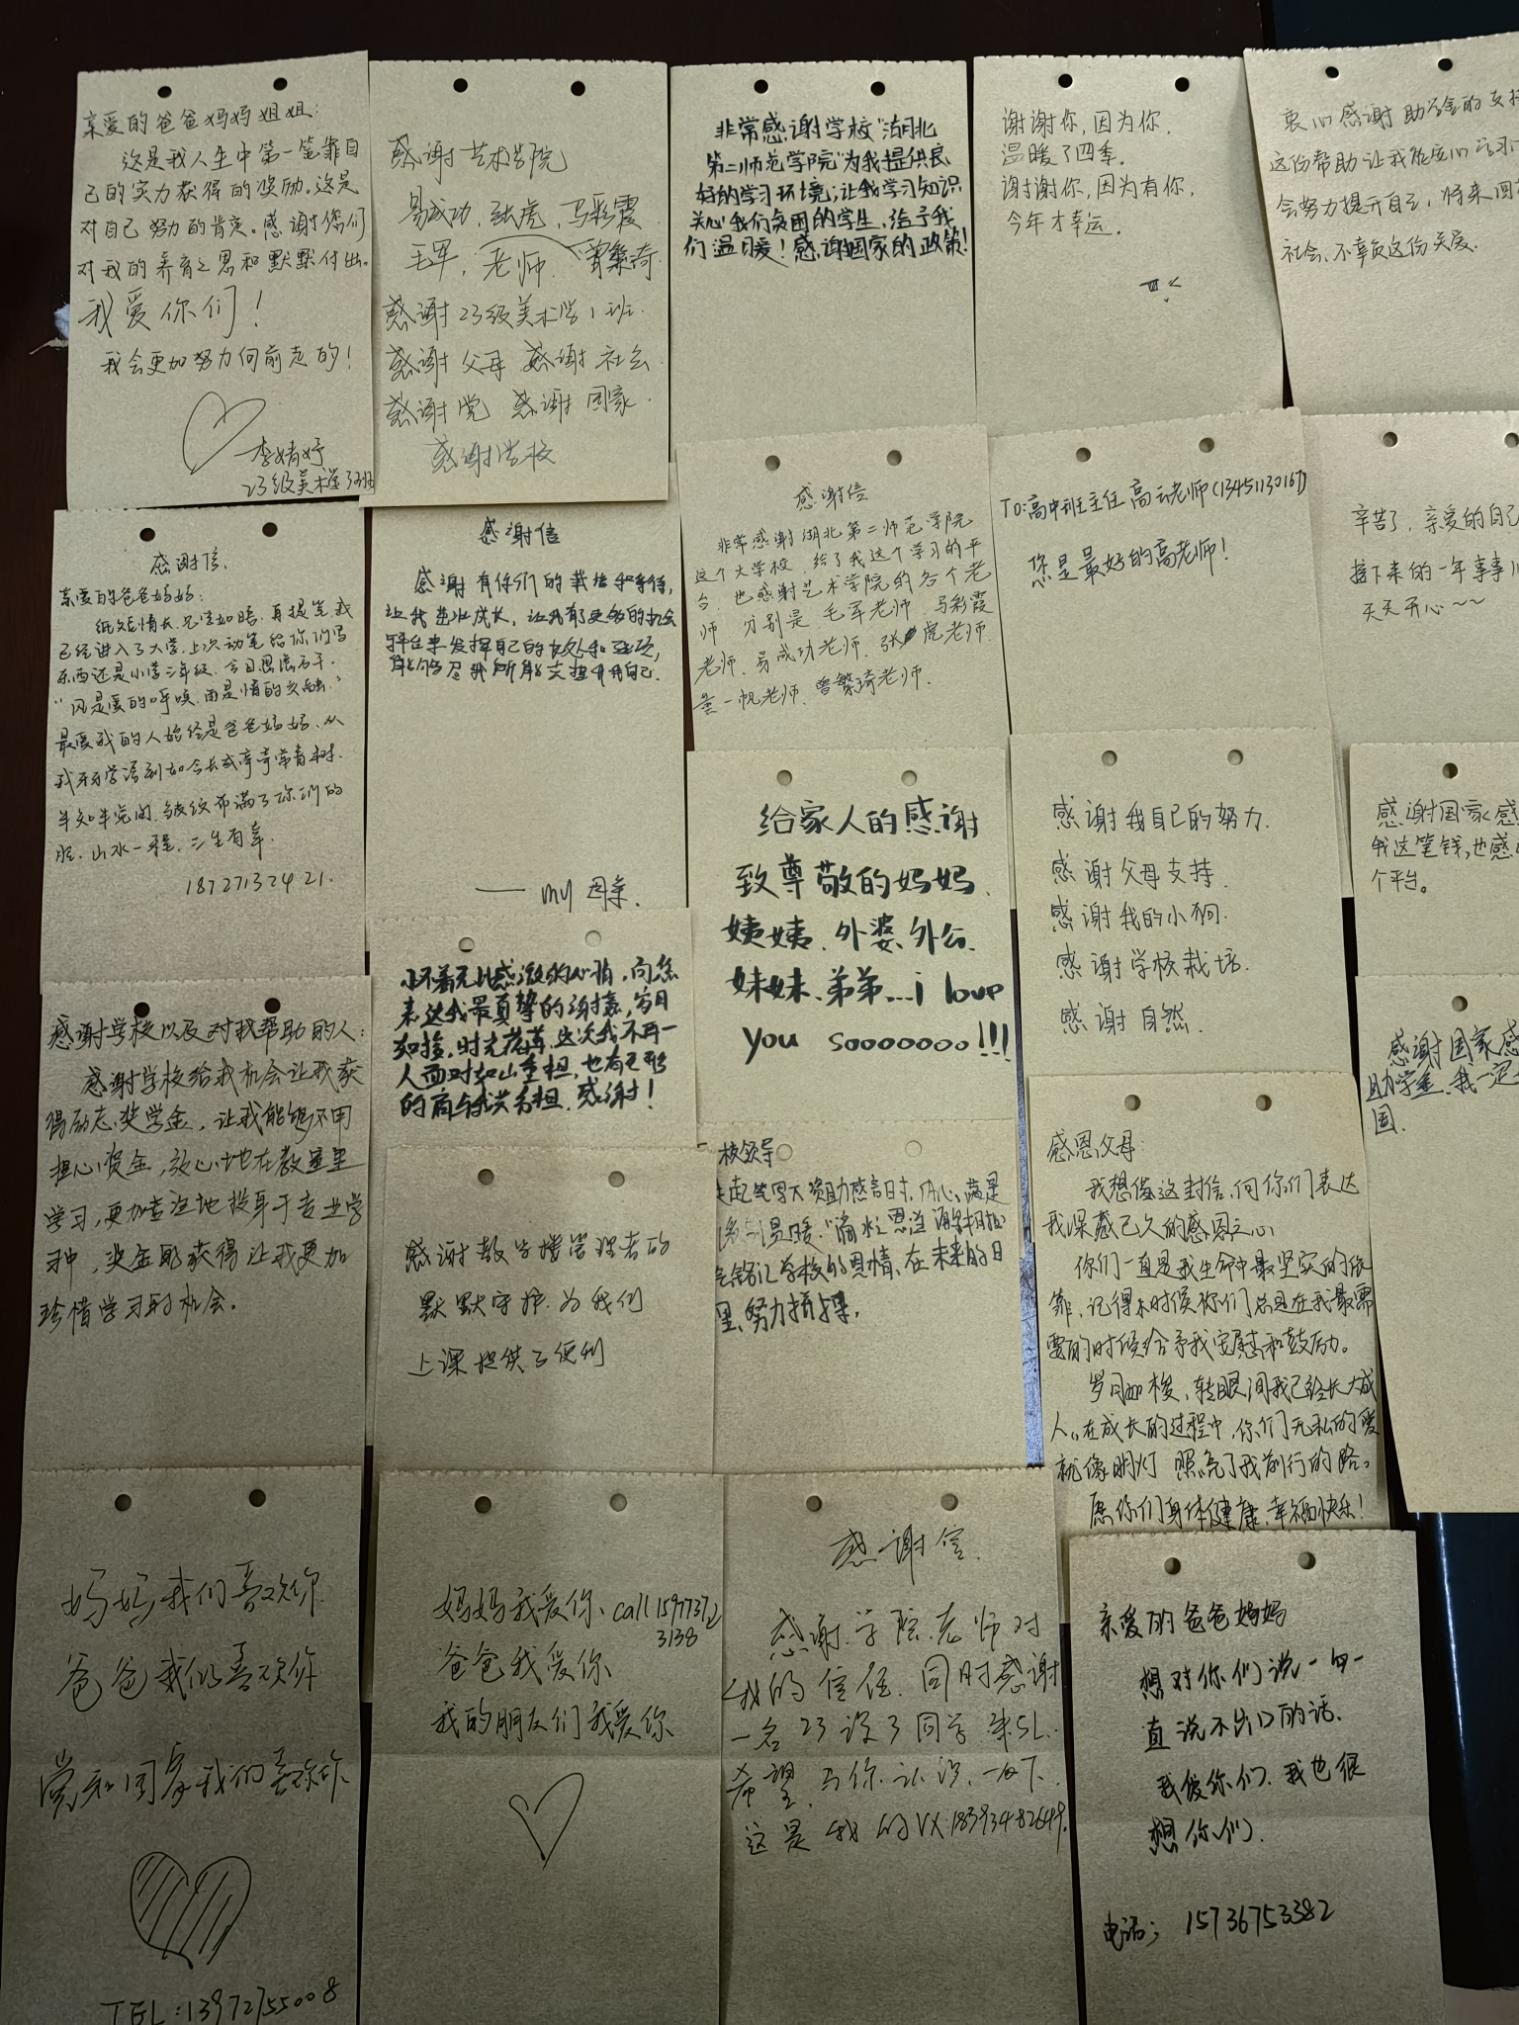 亲爱的爸爸妈妈姐姐:
这是我人生中第一笔靠自
己的实力获得的奖励。这是
对自己努力的肯定。感谢你们
对我的养育之恩和默默付出。
我爱你们!
我会更加努力向前走的!
李婧妤
23级美术学3班
感谢艺术学院
易成功,张虎,马彩霞
毛军,老师.曾繁琦
感谢23级美术学1班.
感谢父母 感谢社会.
感谢党 感谢国家.
感谢学校
非常感谢学校“湖北
第二师范学院”为我提供良
好的学习环境;让我学习知识
关心我们贫困的学生,给予我
们温暖!感谢国家的政策!
谢谢你,因为你.
温暖了四季.
谢谢你,因为有你,
今年才幸运.
衷心感谢助学金的支持
这份帮助让我能安心
会努力提升自己,将来回
社会、不辜负这份关爱.
感谢信.
亲爱的爸爸妈妈:
纸短情长,见信如晤,再提笔我
已经进入了大学,上次动笔给你们写
东西还是小学三年级,今日思绪万千.
“风是爱的呼唤,雨是情的交融.”
最爱我的人始终是爸爸妈妈,从
我牙牙学语到如今长成亭亭常青树.
皱纹布满了你们的
脸,山水一程,三生有幸.
18727132421.
感谢信
感谢有你们的栽培和等待,
让我茁壮成长,让我有了更多的机会
平台来发挥自己的长处和强项,
能够尽我所能支撑自己.
—— my 母亲.
感谢信
非常感谢湖北第二师范学院
这个大学校,给了我这个学习的平
台,也感谢艺术学院的各个老
师,分别是毛军老师,马彩霞
老师.易成功老师.张虎老师.
一帆老师.曾繁琦老师.
TO:高中班主任高云老师(13451130167)
您是最好的高老师!
辛苦了,亲爱的自己
接下来的一年事事
天天开心~~
给家人的感谢
致尊敬的妈妈.
姨姨、外婆、外公.
妹妹、弟弟...i love
you sooooooo!!!
感谢我自己的努力.
感谢父母支持.
感谢我的小狗.
感谢学校栽培.
感谢自然.
感谢国家感
我这笔钱,也感
个平台。
怀着无比感激的心情,向您
表达我最真挚的谢意,岁月
如梭,时光荏苒,这次我不再一
人面对如山重担,也有无形
的肩与我共分担,感谢!
感谢学校以及对我帮助的人:
感谢学校给我机会让我获
得励志奖学金,让我能够不用
担心资金,放心地在教室里
学习,更加专注地投身于专业学
习中,奖金的获得让我更加
珍惜学习的机会。
感谢国家感
助学金.我一定
国.
感谢教学楼管理者的
默默守护.为我们
上课提供了便利
校领导
提起笔写下资助感言时,内心满是
感激与温暖.“滴水之恩当涌泉相报”
铭记学校的恩情、在未来的日
里、努力拼搏.
感恩父母:
我想借这封信,向你们表达
我深藏已久的感恩之心
你们一直是我生命中最坚实的依
靠,记得小时候你们总是在我最需
要的时候给予我安慰和鼓励。
岁月如梭,转眼间我已经长大成
人。在成长的过程中,你们无私的爱
就像明灯 照亮了我前行的路。
愿你们身体健康,幸福快乐!
妈妈我们喜欢你
爸爸我们喜欢你
党和国家我们喜欢你
TEL:13972755008
妈妈我爱你、call 1597372
3138
爸爸我爱你
我的朋友们我爱你
感谢信.
感谢学院老师对
我的信任.同时感谢
一名23设3同学朱SL.
希望与你认识一下.
这是我的VX:18393482649.
亲爱的爸爸妈妈
想对你们说一句一
直说不出口的话.
我爱你们.我也很
想你们.
电话;15736753382